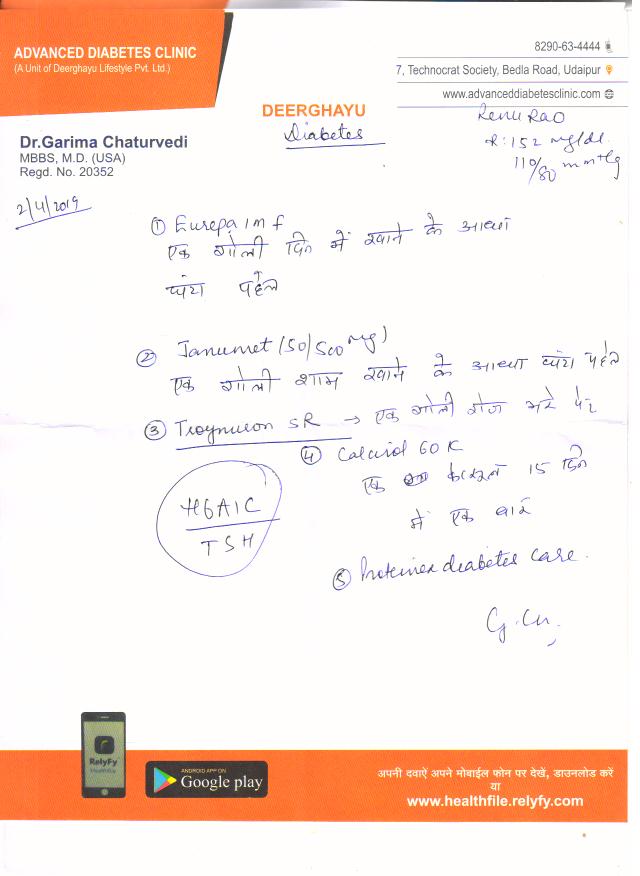 ADVANCED DIABETES CLINIC
(A Unit of Deerghayu Lifestyle Pvt. Ltd.)
8290-63-4444
7, Technocrat Society, Bedla Road, Udaipur
www.advanceddiabetesclinic.com
DEERGHAYU
Diabetes
Renu Rao
R: 152 mg/dl.
110/80 mmHg
Dr.Garima Chaturvedi
MBBS, M.D. (USA)
Regd. No. 20352
2/4/2019
① Eurepa 1 m f
एक गोली दिन में खाने के आधा
घंटा पहले
② Janumet (50/500 mg)
एक गोली शाम खाने के आधा घंटा पहले
③ Troynuron SR → एक गोली रोज भरे पेट
④ Calcirol 60 K
एक 15 दिन
में एक बार
HbA1C
TSH
⑤ Proteinex diabetes care.
RelyFy
Healthfile
ANDROID APP ON
Google play
अपनी दवाऐं अपने मोबाईल फोन पर देखें, डाउनलोड करें
या
www.healthfile.relyfy.com